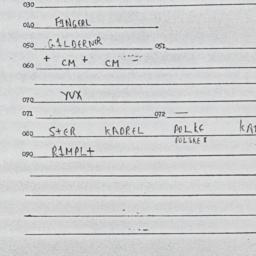 030
040 FINGERL
050 GILDERNR 051
060 + CM + CM
070 YUX
071 072 —
080 S+ER KADREL POLKE KA
POLIKE
090 RIMPL+